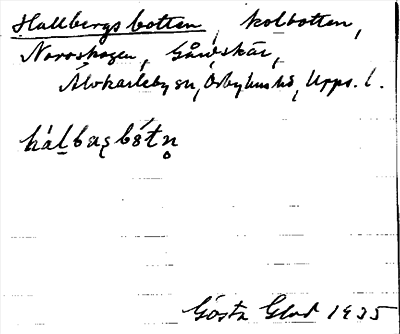 Hallbergsbotten, kolbotten,
Norrskogen, Gårdskär,
Älvkarleby sn, Örbyhus hd, Upps. l.
hálbasbòtn̥
Gösta Glad 1935